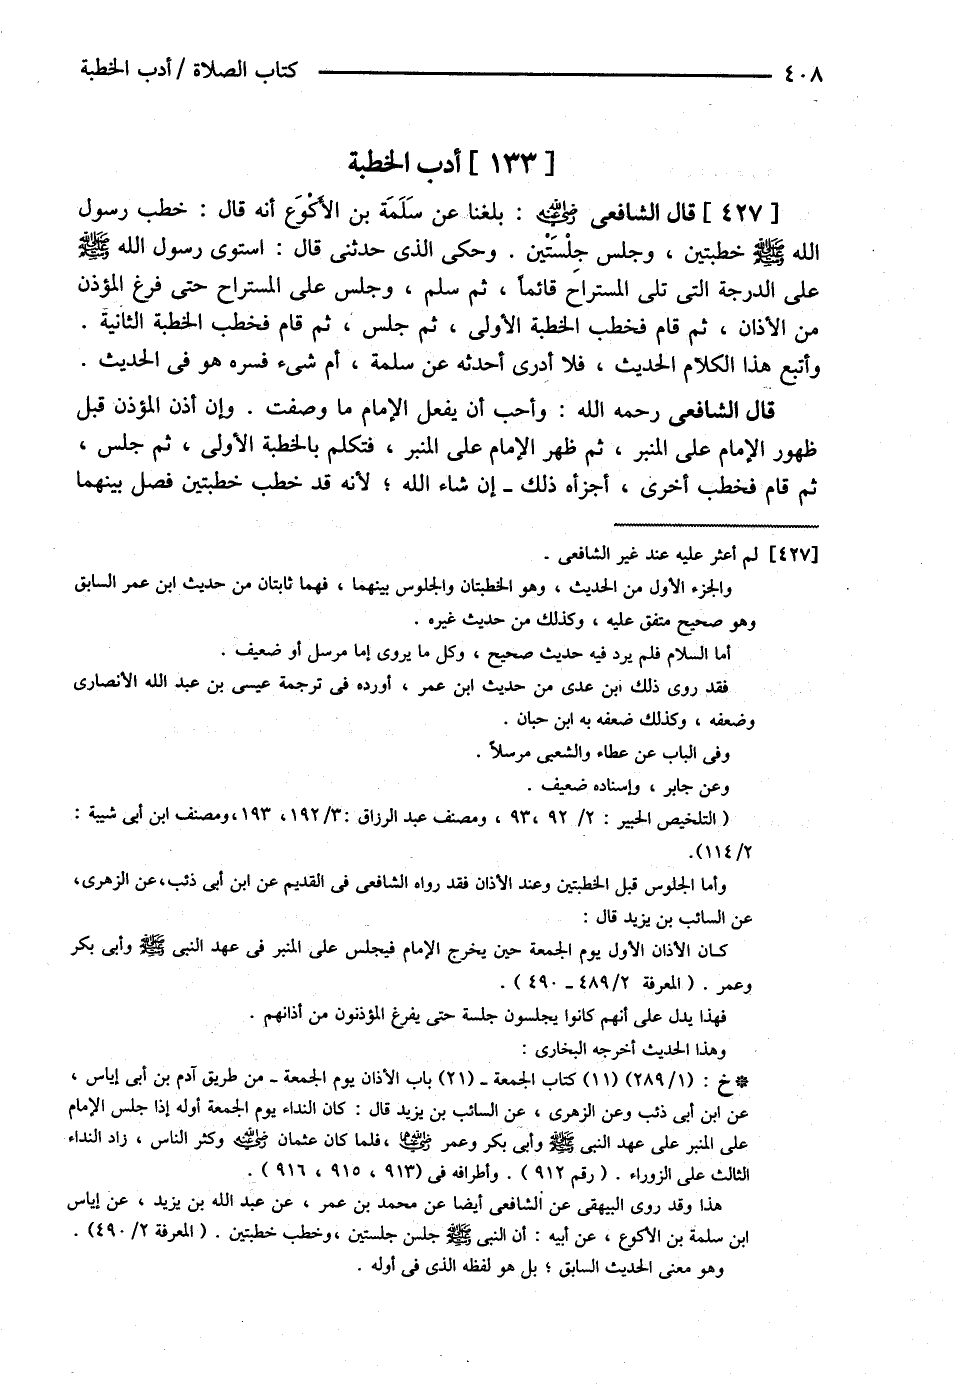 ٤٠٨ كتاب الصلاة / أدب الخطبة
[ ١٣٣ ] أدب الخطبة
[ ٤٢٧ ] قال الشافعى رضي الله عنه : بلغنا عن سَلَمَة بن الأكْوَع أنه قال : خطب رسول
الله ﷺ خطبتين ، وجلس جِلْسَتْين . وحكى الذى حدثنى قال : استوى رسول الله ﷺ
على الدرجة التى تلى المستراح قائماً ، ثم سلم ، وجلس على المستراح حتى فرغ المؤذن
من الأذان ، ثم قام فخطب الخطبة الأولى ، ثم جلس ، ثم قام فخطب الخطبة الثانية .
وأتبع هذا الكلام الحديث ، فلا أدرى أحدثه عن سلمة ، أم شىء فسره هو فى الحديث .
قال الشافعى رحمه الله : وأحب أن يفعل الإمام ما وصفت . وإن أذن المؤذن قبل
ظهور الإمام على المنبر ، ثم ظهر الإمام على المنبر ، فتكلم بالخطبة الأولى ، ثم جلس ،
ثم قام فخطب أخرى ، أجزأه ذلك ـ إن شاء الله ؛ لأنه قد خطب خطبتين فصل بينهما
[٤٢٧] لم أعثر عليه عند غير الشافعى .
والجزء الأول من الحديث ، وهو الخطبتان والجلوس بينهما ، فهما ثابتان من حديث ابن عمر السابق
وهو صحيح متفق عليه ، وكذلك من حديث غيره .
أما السلام فلم يرد فيه حديث صحيح ، وكل ما يروى إما مرسل أو ضعيف .
فقد روى ذلك ابن عدى من حديث ابن عمر ، أورده فى ترجمة عيسى بن عبد الله الأنصارى
وضعفه ، وكذلك ضعفه به ابن حبان .
وفى الباب عن عطاء والشعبى مرسلاً .
وعن جابر ، وإسناده ضعيف .
( التلخيص الحبير : ٢/ ٩٢ ،٩٣ ، ومصنف عبد الرزاق :٣/ ١٩٢، ١٩٣،ومصنف ابن أبى شيبة :
٢/ ١١٤).
وأما الجلوس قبل الخطبتين وعند الأذان فقد رواه الشافعى فى القديم عن ابن أبى ذئب،عن الزهرى،
عن السائب بن يزيد قال :
كـان الأذان الأول يوم الجمعة حين يخرج الإمام فيجلس على المنبر فى عهد النبى ﷺ وأبى بكر
وعمر . ( المعرفة ٢/ ٤٨٩ ـ ٤٩٠ ) .
فهذا يدل على أنهم كانوا يجلسون جلسة حتى يفرغ المؤذنون من أذانهم .
وهذا الحديث أخرجه البخارى :
* خ : (١/ ٢٨٩) (١١) كتاب الجمعة ـ (٢١) باب الأذان يوم الجمعة ـ من طريق آدم بن أبى إياس ،
عن ابن أبى ذئب وعن الزهرى ، عن السائب بن يزيد قال : كان النداء يوم الجمعة أوله إذا جلس الإمام
على المنبر على عهد النبى ﷺ وأبى بكر وعمر رضي الله عنهما ،فلما كان عثمان رضي الله عنه وكثر الناس ، زاد النداء
الثالث على الزوراء . ( رقم ٩١٢ ) . وأطرافه فى (٩١٣ ، ٩١٥ ، ٩١٦ ) .
هذا وقد روى البيهقى عن الشافعى أيضا عن محمد بن عمر ، عن عبد الله بن يزيد ، عن إياس
ابن سلمة بن الأكوع ، عن أبيه : أن النبى ﷺ جلس جلستين ،وخطب خطبتين . ( المعرفة ٢/ ٤٩٠) .
وهو معنى الحديث السابق ؛ بل هو لفظه الذى فى أوله .